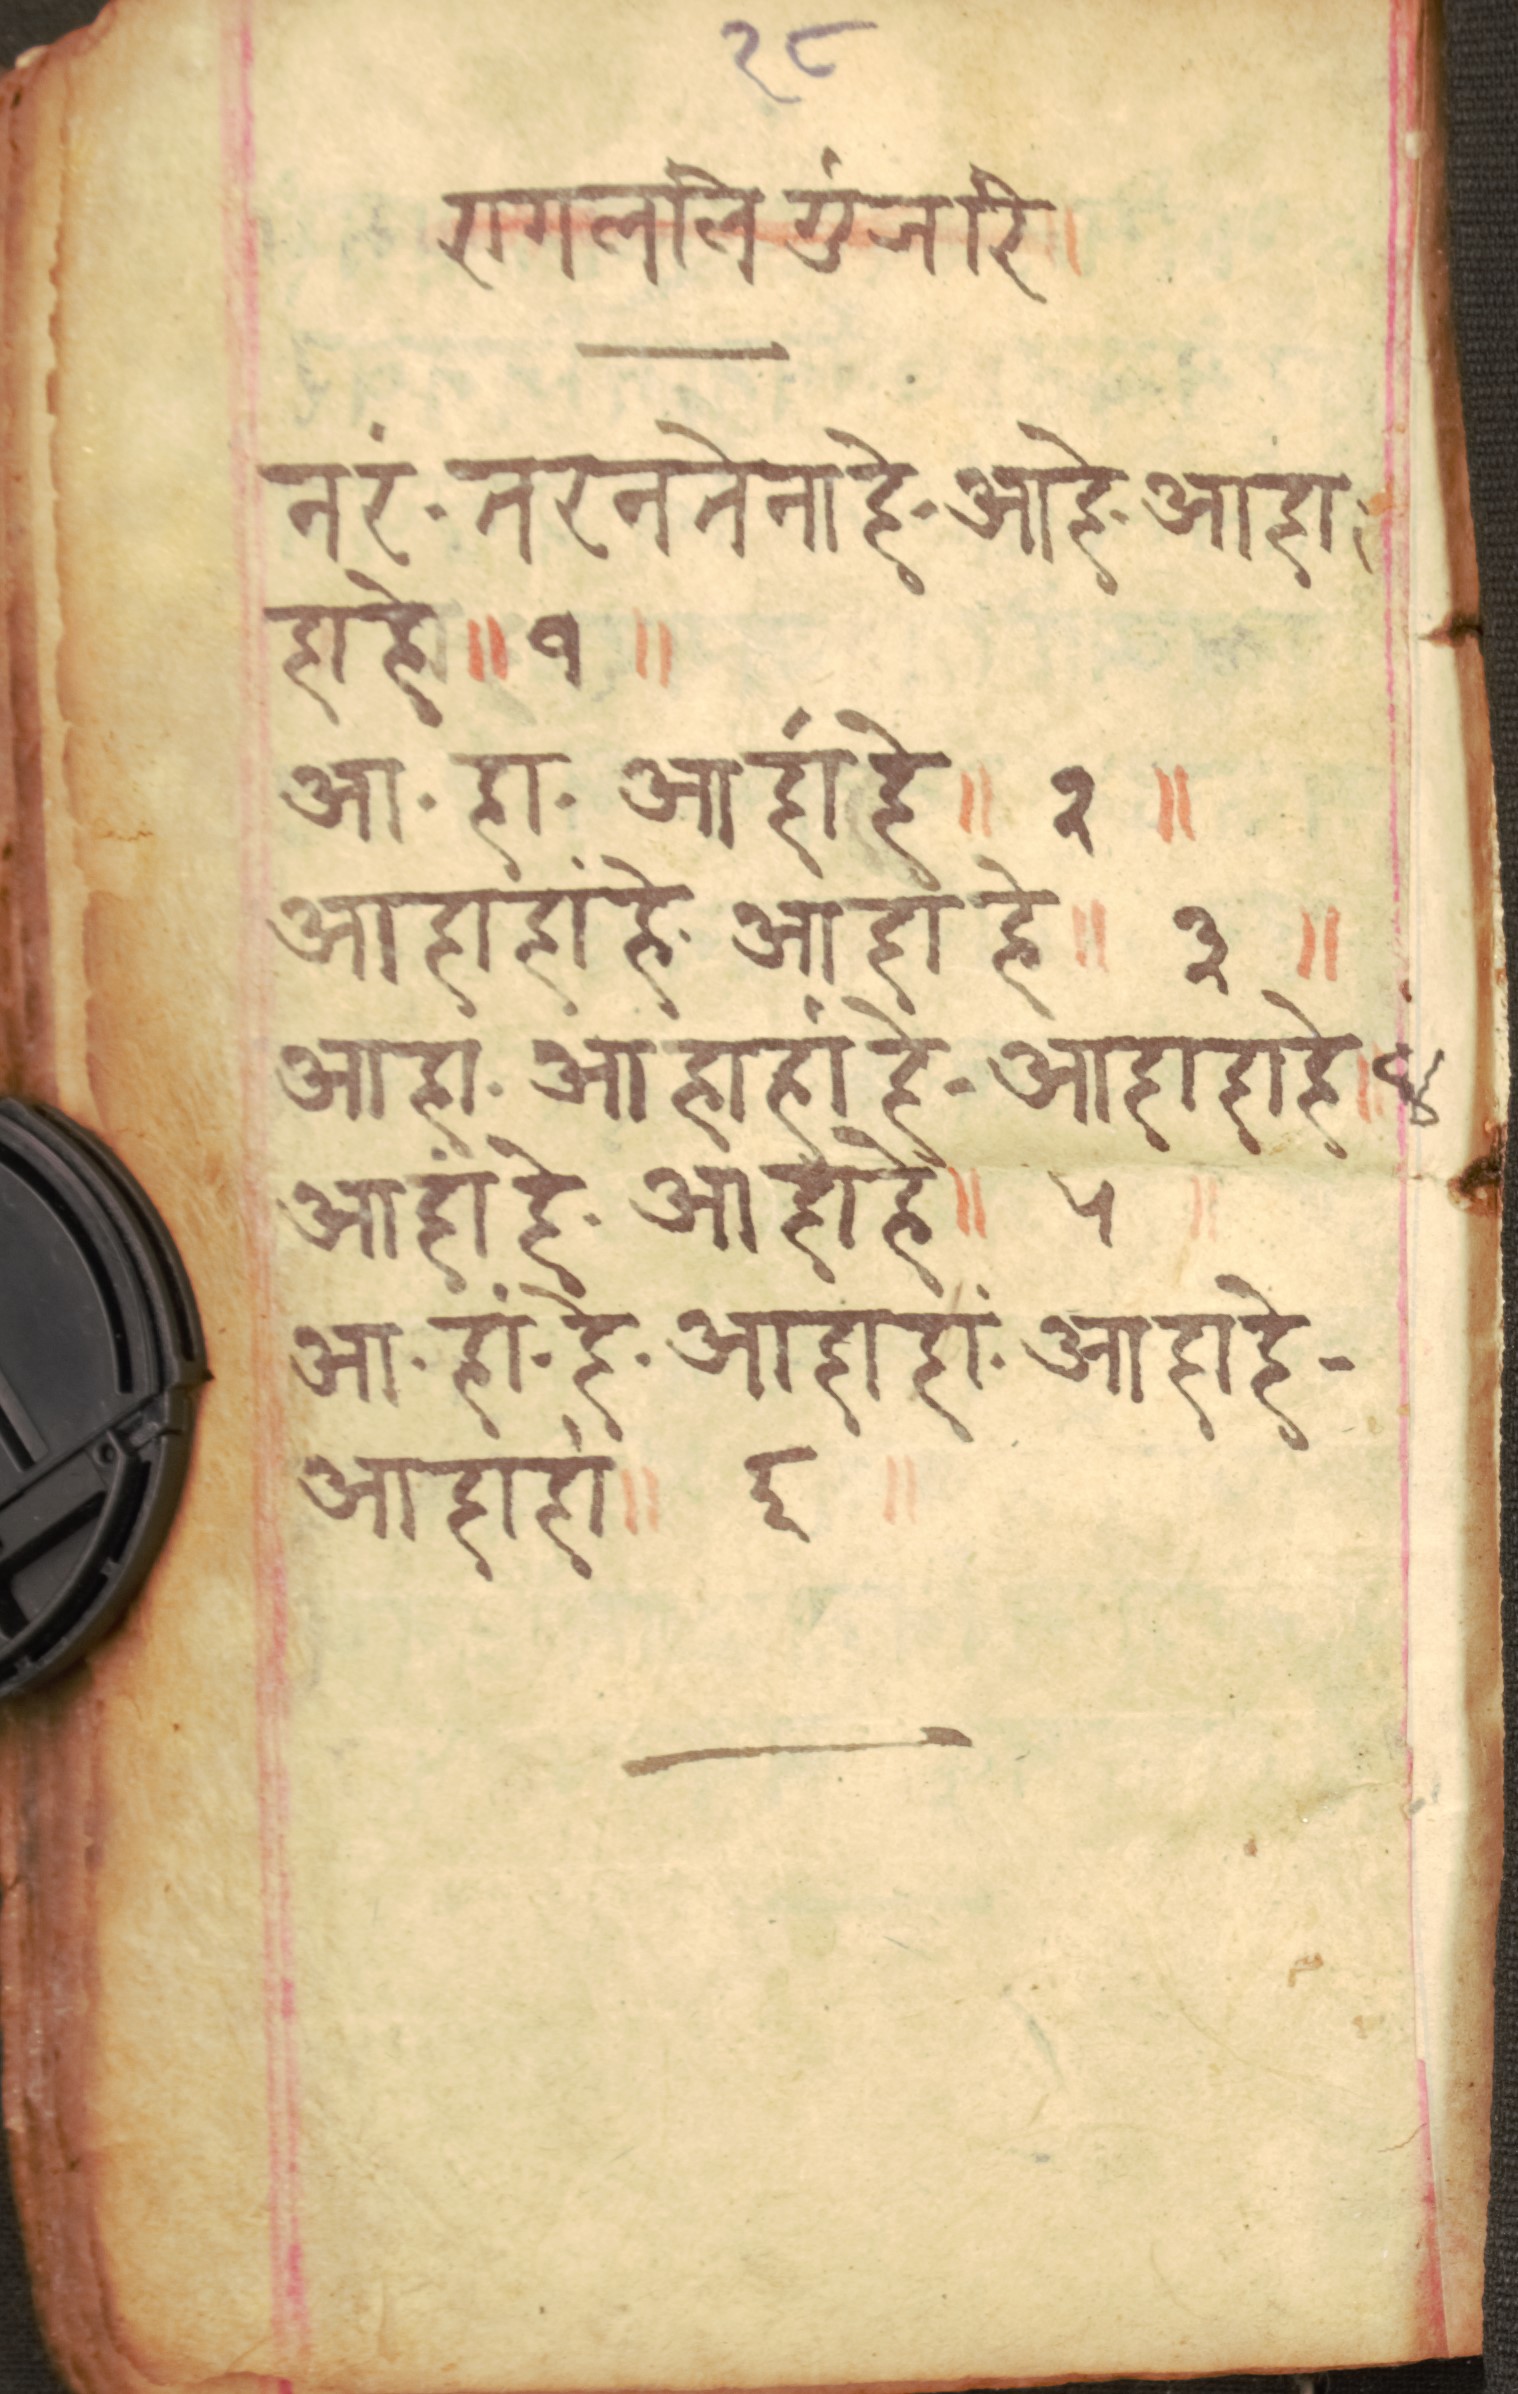 २८
रागललति गुंजरि
नरं · तरनतेनाहे · आहे · आहा ·
हाहे ॥ १ ॥
आ · हा · आहांहे ॥ २ ॥
आहाहांहे · आहाहे ॥ ३ ॥
आहा · आहाहांहे - आहाहाहे ॥ ४
आहांहे · आहाहे ॥ ५ ॥
आ · हां · हे · आहाहां · आहाहे -
आहाहां ॥ ६ ॥